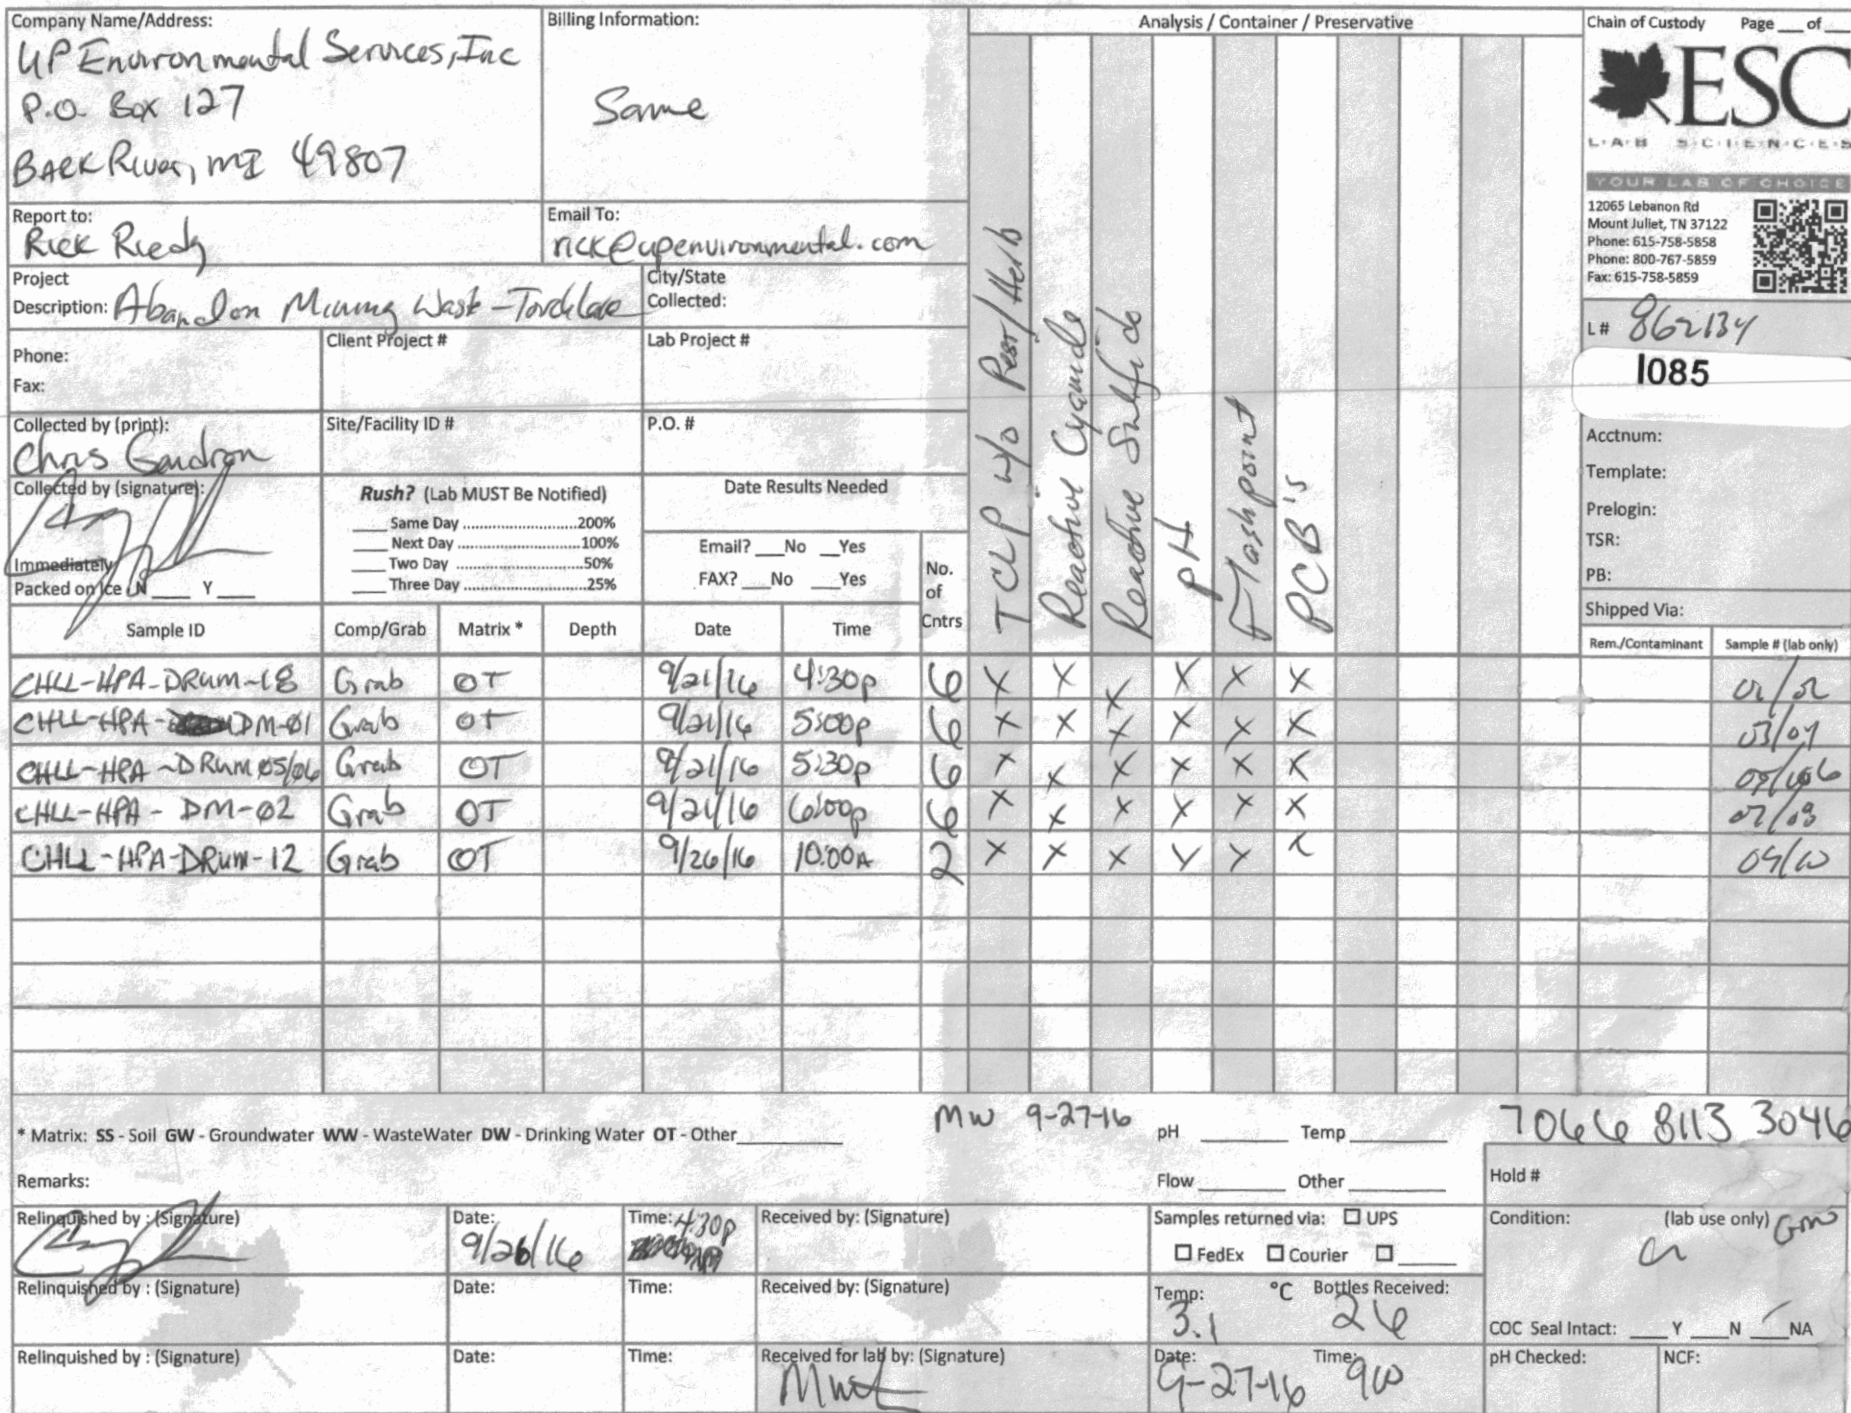 Company Name/Address:
UP Environmental Services, Inc
P.O. Box 127
BARK River, MI 49807
Billing Information:
Same
Analysis / Container / Preservative
Chain of Custody Page ___ of ___
ESC
L·A·B S·C·I·E·N·C·E·S
YOUR LAB OF CHOICE
12065 Lebanon Rd
Mount Juliet, TN 37122
Phone: 615-758-5858
Phone: 800-767-5859
Fax: 615-758-5859
Report to:
Rick
Email To:
rick@upenvironmental.com
Project
Description: Abandon Mining Waste -
City/State
Collected:
L# 862134
I085
Phone:
Fax:
Client Project #
Lab Project #
Collected by (print):
Chris
Site/Facility ID #
P.O. #
Acctnum:
Template:
Prelogin:
TSR:
PB:
Shipped Via:
Collected by (signature):
Immediately
Packed on Ice N ___ Y ___
Rush? (Lab MUST Be Notified)
___ Same Day ..............................200%
___ Next Day ..............................100%
___ Two Day ..............................50%
___ Three Day ............................25%
Date Results Needed
Email? ___No ___Yes
FAX? ___No ___Yes
No.
of
Cntrs
TCLP w/o Pest/Herb
Reactive Cyanide
Reactive Sulfide
pH
Flashpoint
PCB's
Sample ID Comp/Grab Matrix * Depth Date Time Rem./Contaminant Sample # (lab only)
CHLL-HPA-DRUM-18 Grab OT 9/21/16 4:30p 6 X X X X X X 01/02
CHLL-HPA- DM-01 Grab OT 9/21/16 5:00p 6 X X X X X X 03/04
CHLL-HPA-DRUM 05/06 Grab OT 9/21/16 5:30p 6 X X X X X X 05/06
CHLL-HPA-DM-02 Grab OT 9/21/16 6:00p 6 X X X X X X 07/08
CHLL-HPA-DRUM-12 Grab OT 9/26/16 10:00A 2 X X X X X X 09/10
* Matrix: SS - Soil GW - Groundwater WW - WasteWater DW - Drinking Water OT - Other___________
MW 9-27-16
pH _________ Temp _________
7066 8113 3046
Remarks:
Flow _________ Other _________
Hold #
Relinquished by : (Signature)
Date: 9/26/16
Time: 430p
Received by: (Signature)
Samples returned via: ☐ UPS
☐ FedEx ☐ Courier ☐ ______
Condition: (lab use only)
Relinquished by : (Signature)
Date:
Time:
Received by: (Signature)
Temp: °C Bottles Received:
3.1 26
COC Seal Intact: ___Y ___N ___NA
Relinquished by : (Signature)
Date:
Time:
Received for lab by: (Signature)
Date: 9-27-16
Time: 900
pH Checked:
NCF: